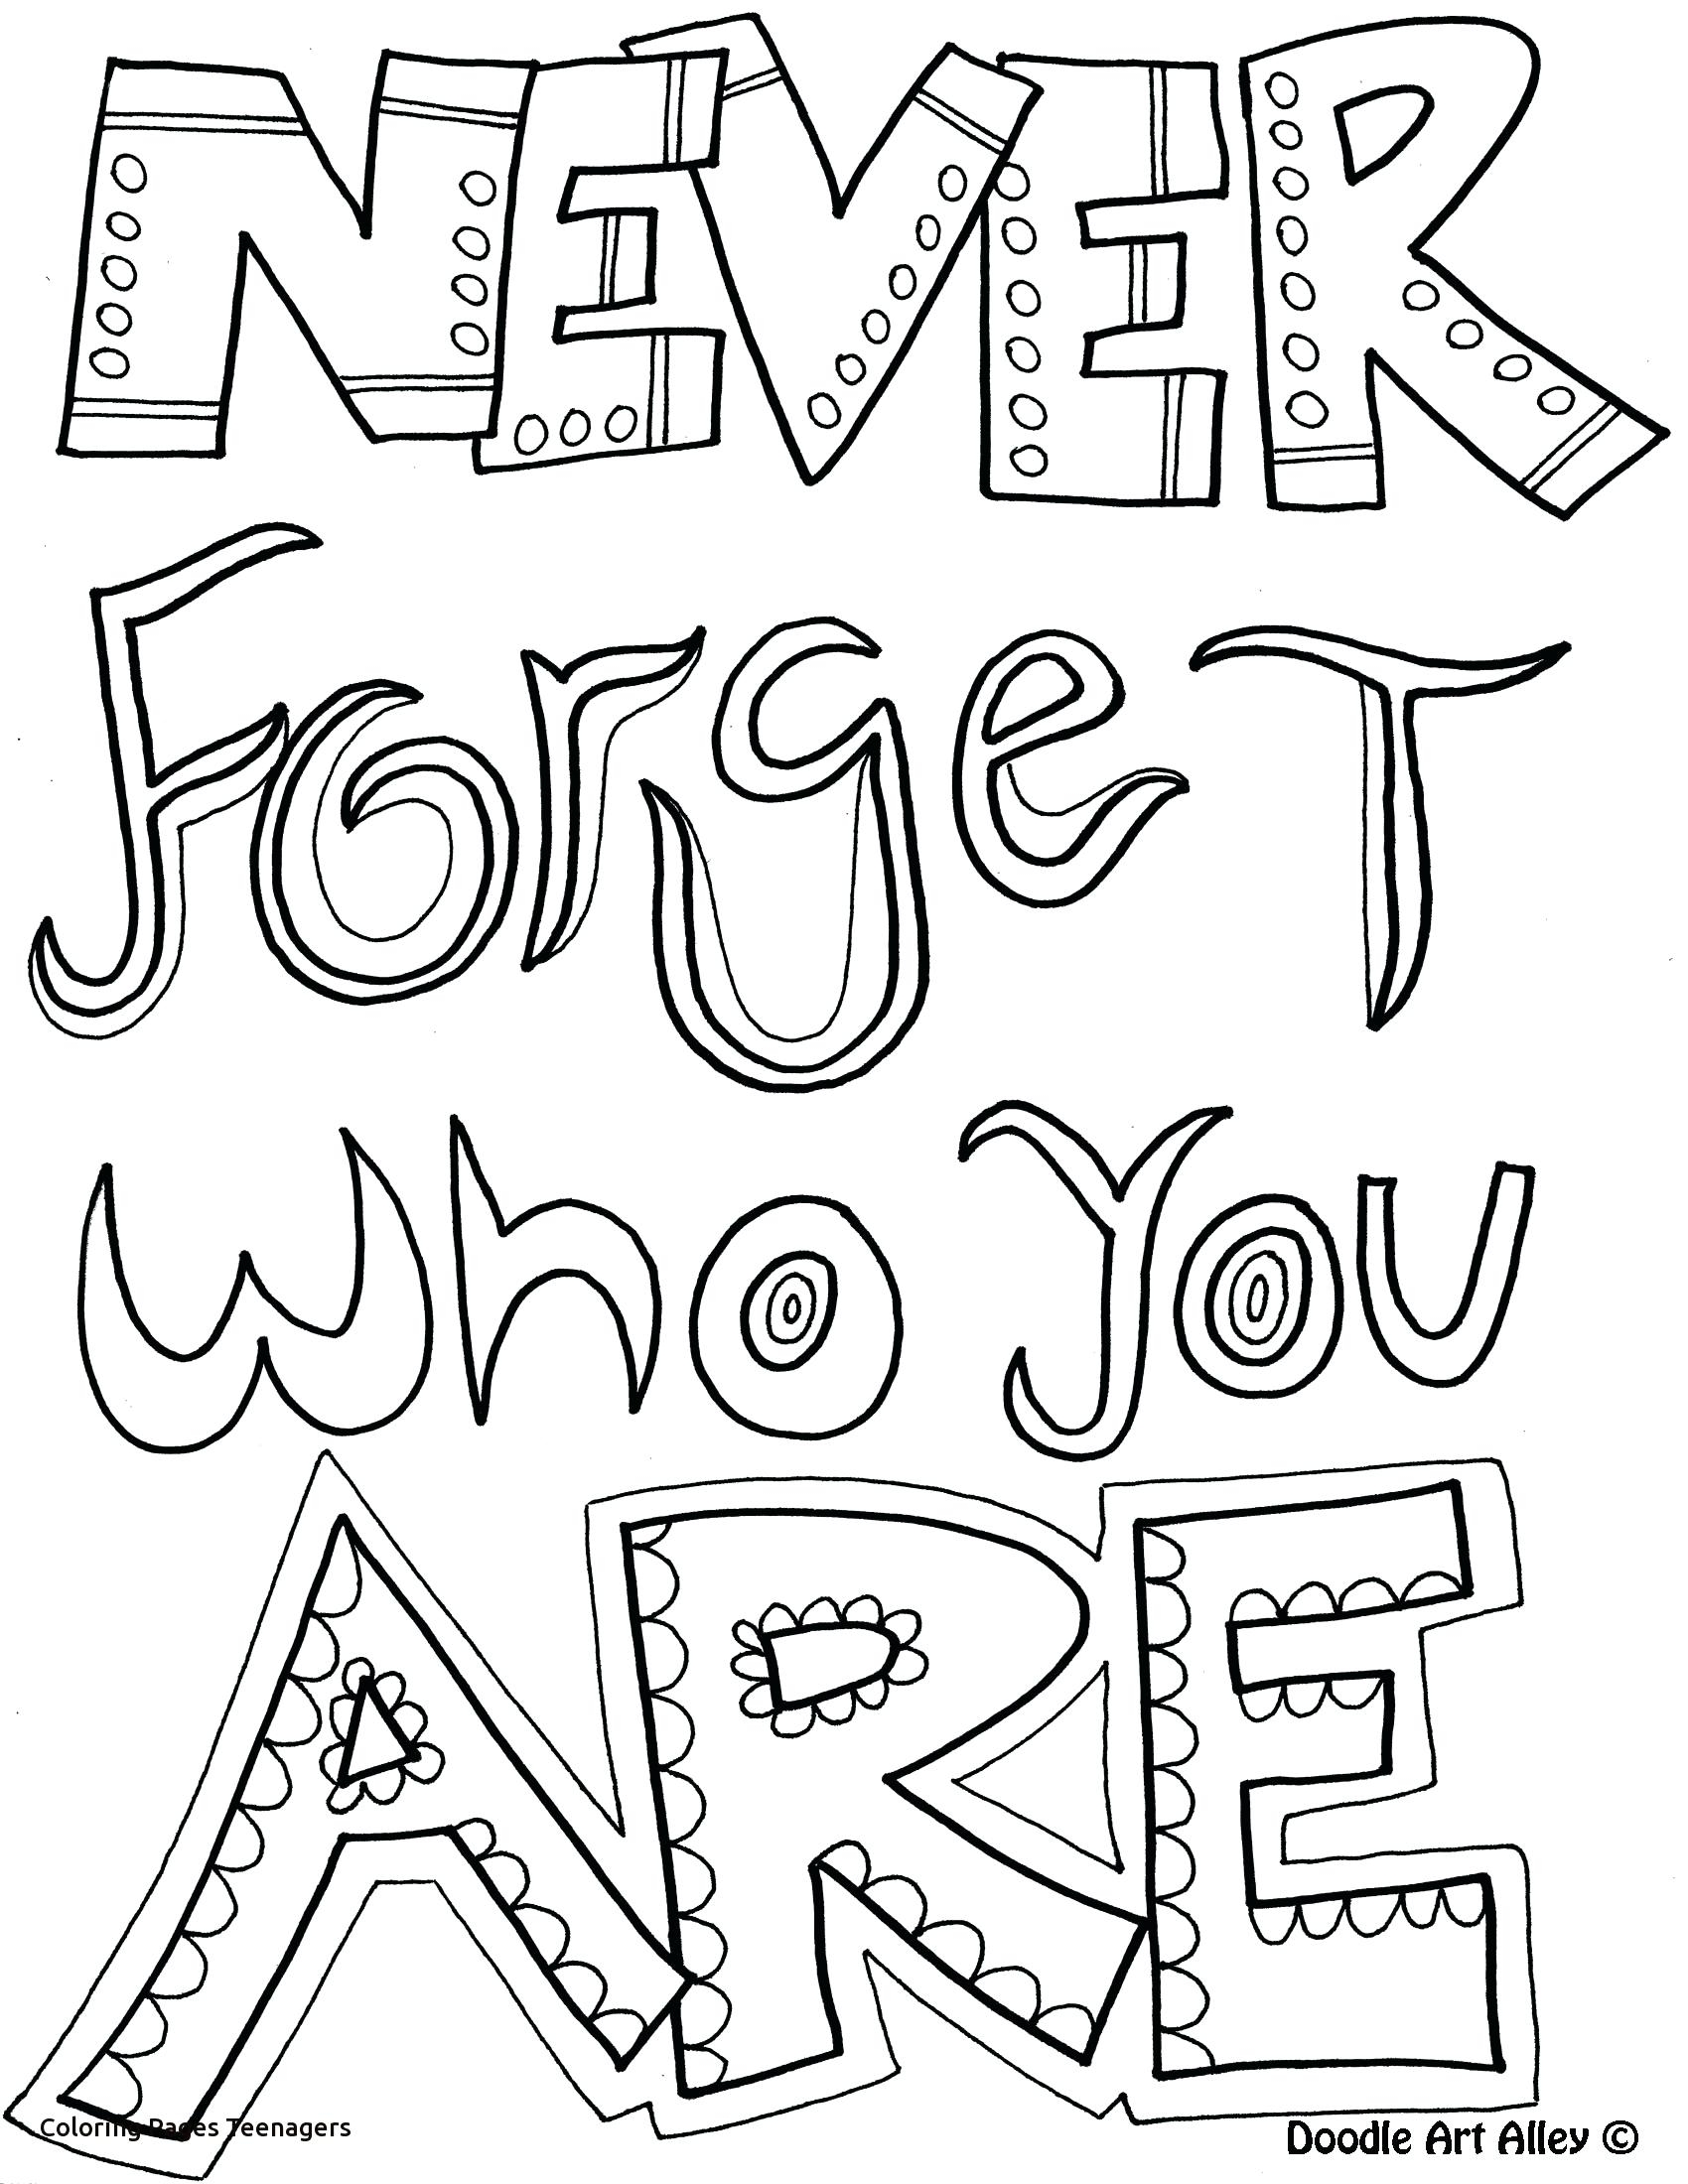 NEVER
ForgeT
who you
ARE
Coloring Pages Teenagers
Doodle Art Alley ©